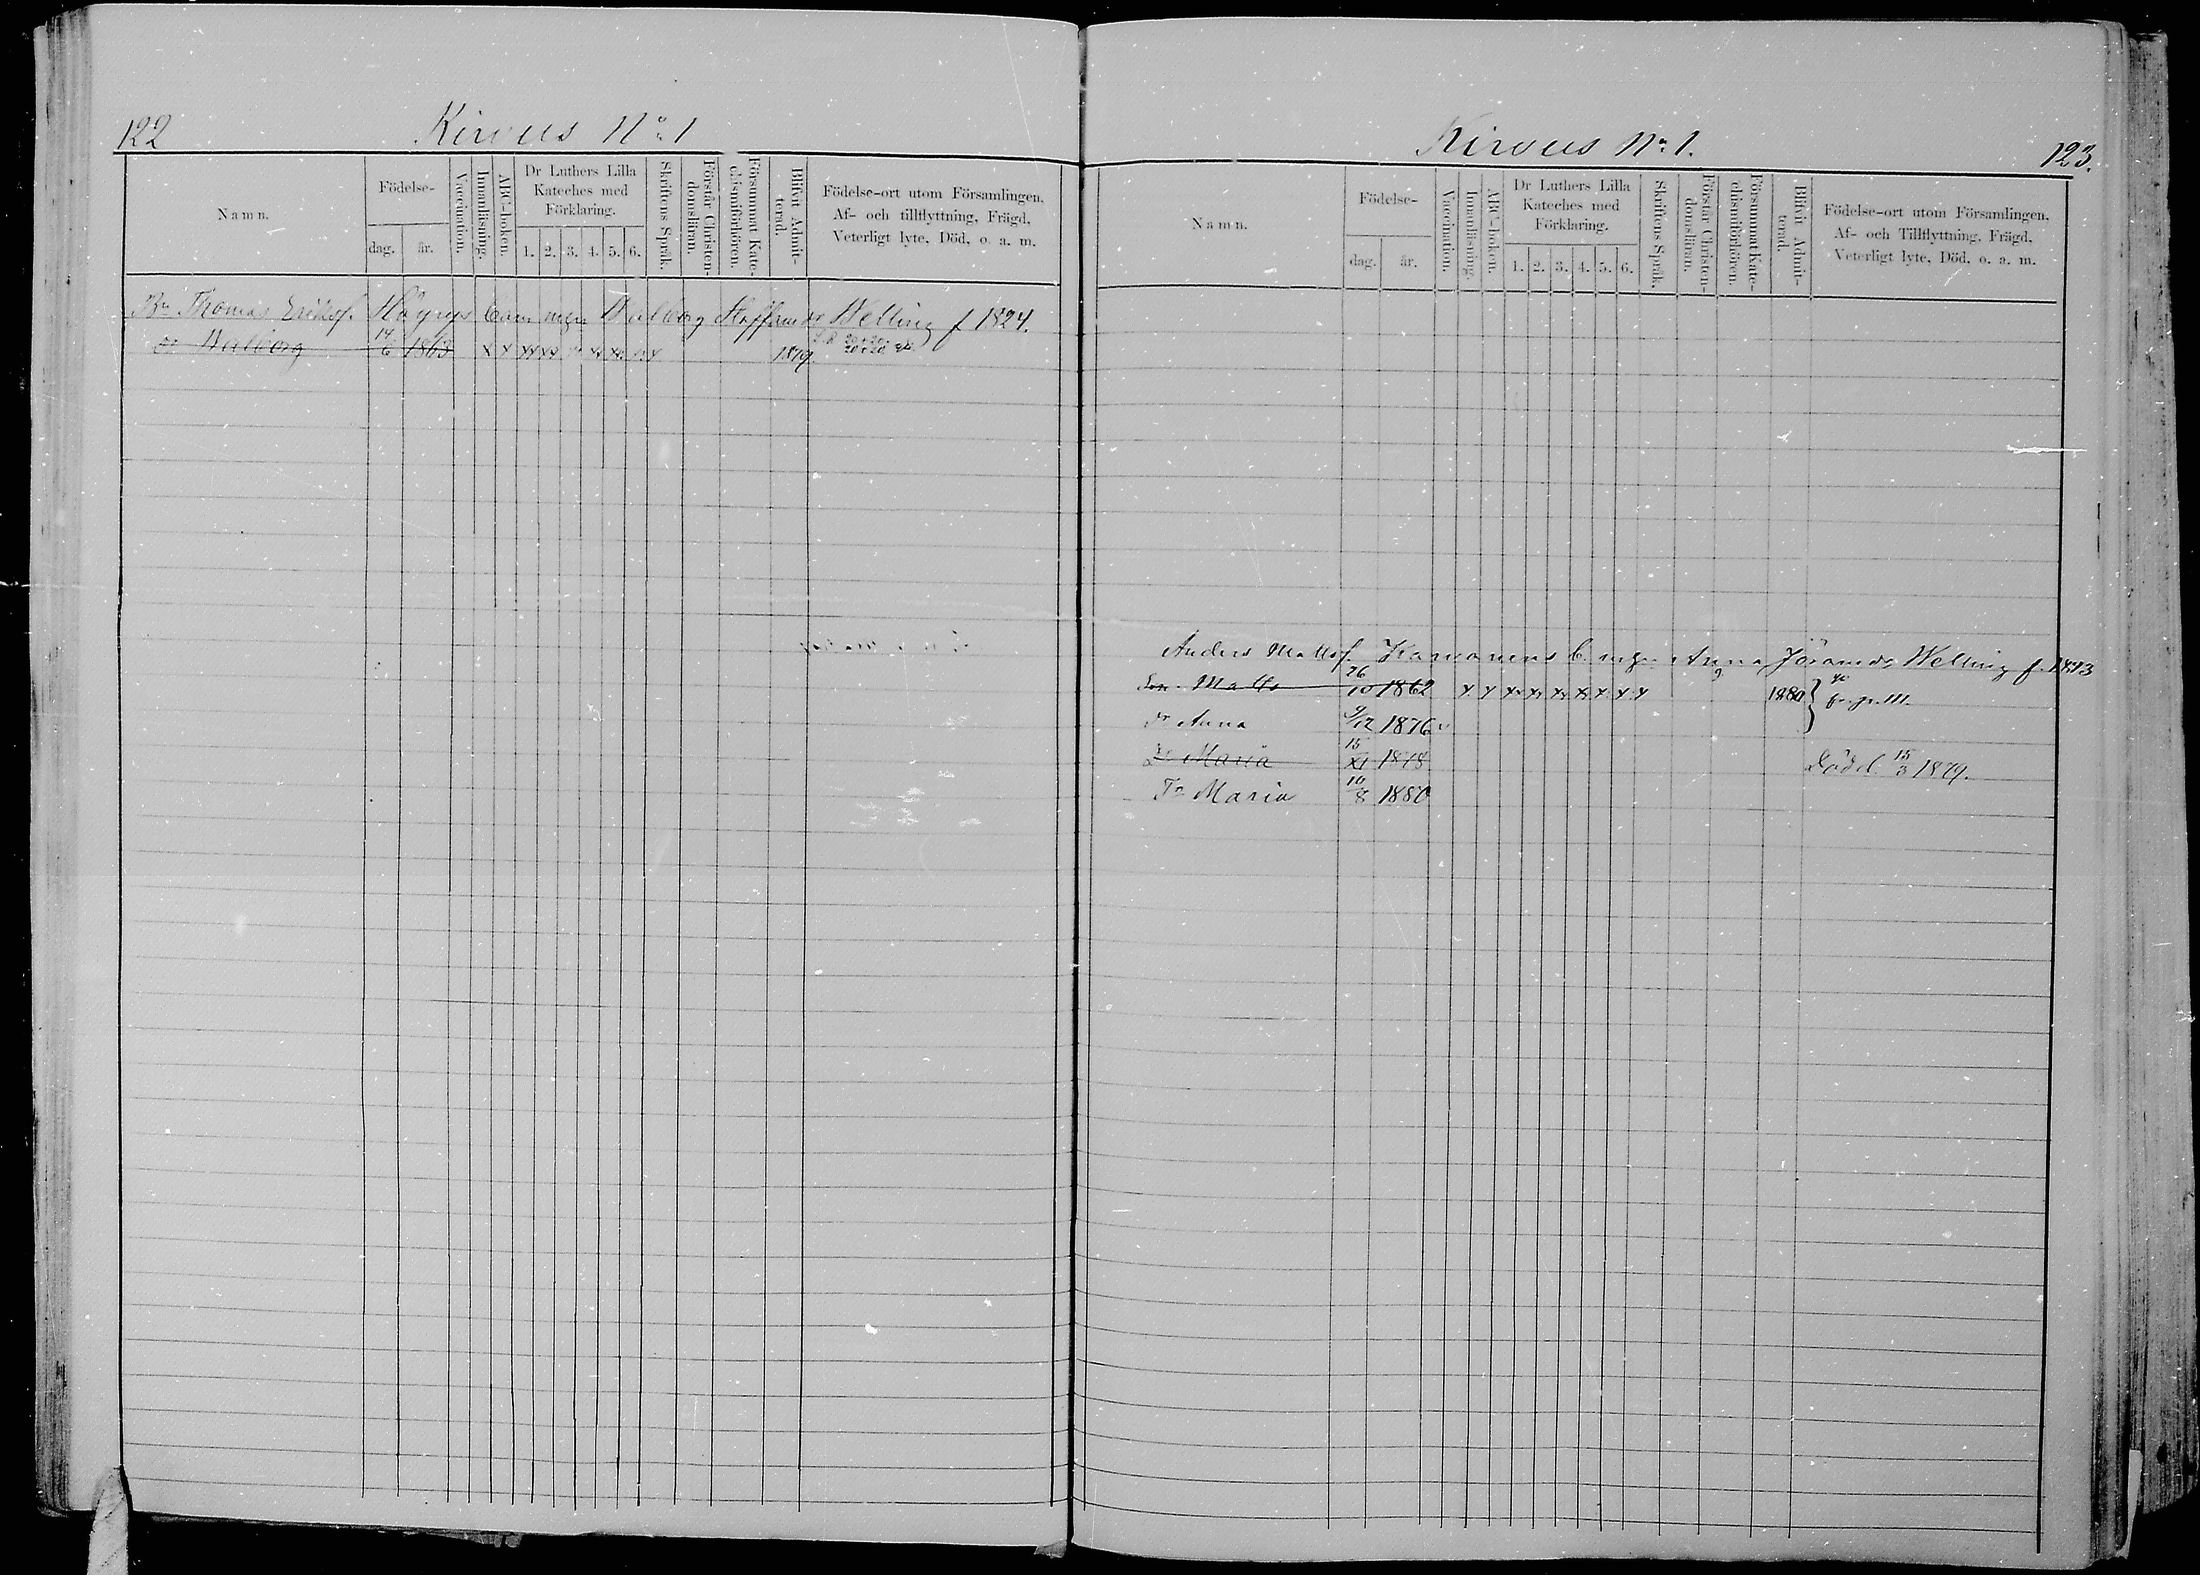 122
Kirvus No 1
Namn.
Födelse-
dag.
år.
Vaccination.
Innanläsning.
ABC-boken.
Dr Luthers Lilla
Kateches med
Förklaring.
1. 2. 3. 4. 5. 6.
Skriftens Språk.
Förstår Christen-
domsläran.
Försummat Kate-
chismiförhören.
Blifvit Admit-
terad.
Födelse-ort utom Församlingen.
Af- och tillflyttning, Frägd,
Veterligt lyte, Död, o. a. m.
Thomas Eriksf. Häyrys barn Walborg Staffansdr Welling f 1824.
dr Walborg 14/6 1863 x x 1879.
Kirvus No 1.
123.
Namn.
Födelse-
dag.
år.
Vaccination.
Innanläsning.
ABC-boken.
Dr Luthers Lilla
Kateches med
Förklaring.
1. 2. 3. 4. 5. 6.
Skriftens Språk.
Förstår Christen-
domsläran.
Försummat Kate-
chismiförhören.
Blifvit Admit-
terad.
Födelse-ort utom Församlingen.
Af- och Tillflyttning, Frägd,
Veterligt lyte, Död, o. a. m.
Anders Mattsf. b. Anna Jöransdr Welling f.
Son Matts 26/10 1862 x x x x x x x x x 1880
dr Anna 9/12 1876 v
Dr Maria 15/XI 1878 Död d. 15/3 1879.
Dr Maria 10/8 1880